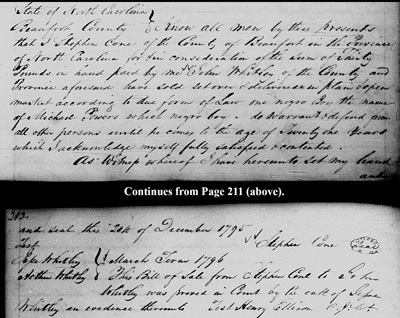 State of North Carolina }
Beaufort County } Know all men by these presents
that I Stephen Cone of the County of Beaufort in the Province
of North Carolina for & in consideration of the sum of Twenty
Pounds in hand paid by me John Whitley of the County and
Province aforesaid have sold set over & delivered in plain & open
market according to due form of Law one negro Boy the name
of Michael Powers which negro boy. do Warrant & defend from
all other persons until he comes to the age of Twenty one Years
which I acknowledge myself fully satisfied & contented.
As Witness whereof I have hereunto set my hand
and
Continues from Page 211 (above).
212.
and seal this 20th of December 1795
Test Stephen Cone Seal
Whitley } March Term 1796
Arthur Whitley } This Bill of Sale from Stephen Cone to John
Whitley was proved in Court by the oath of
Whitley an evidence thereunto Test Henry Ellison